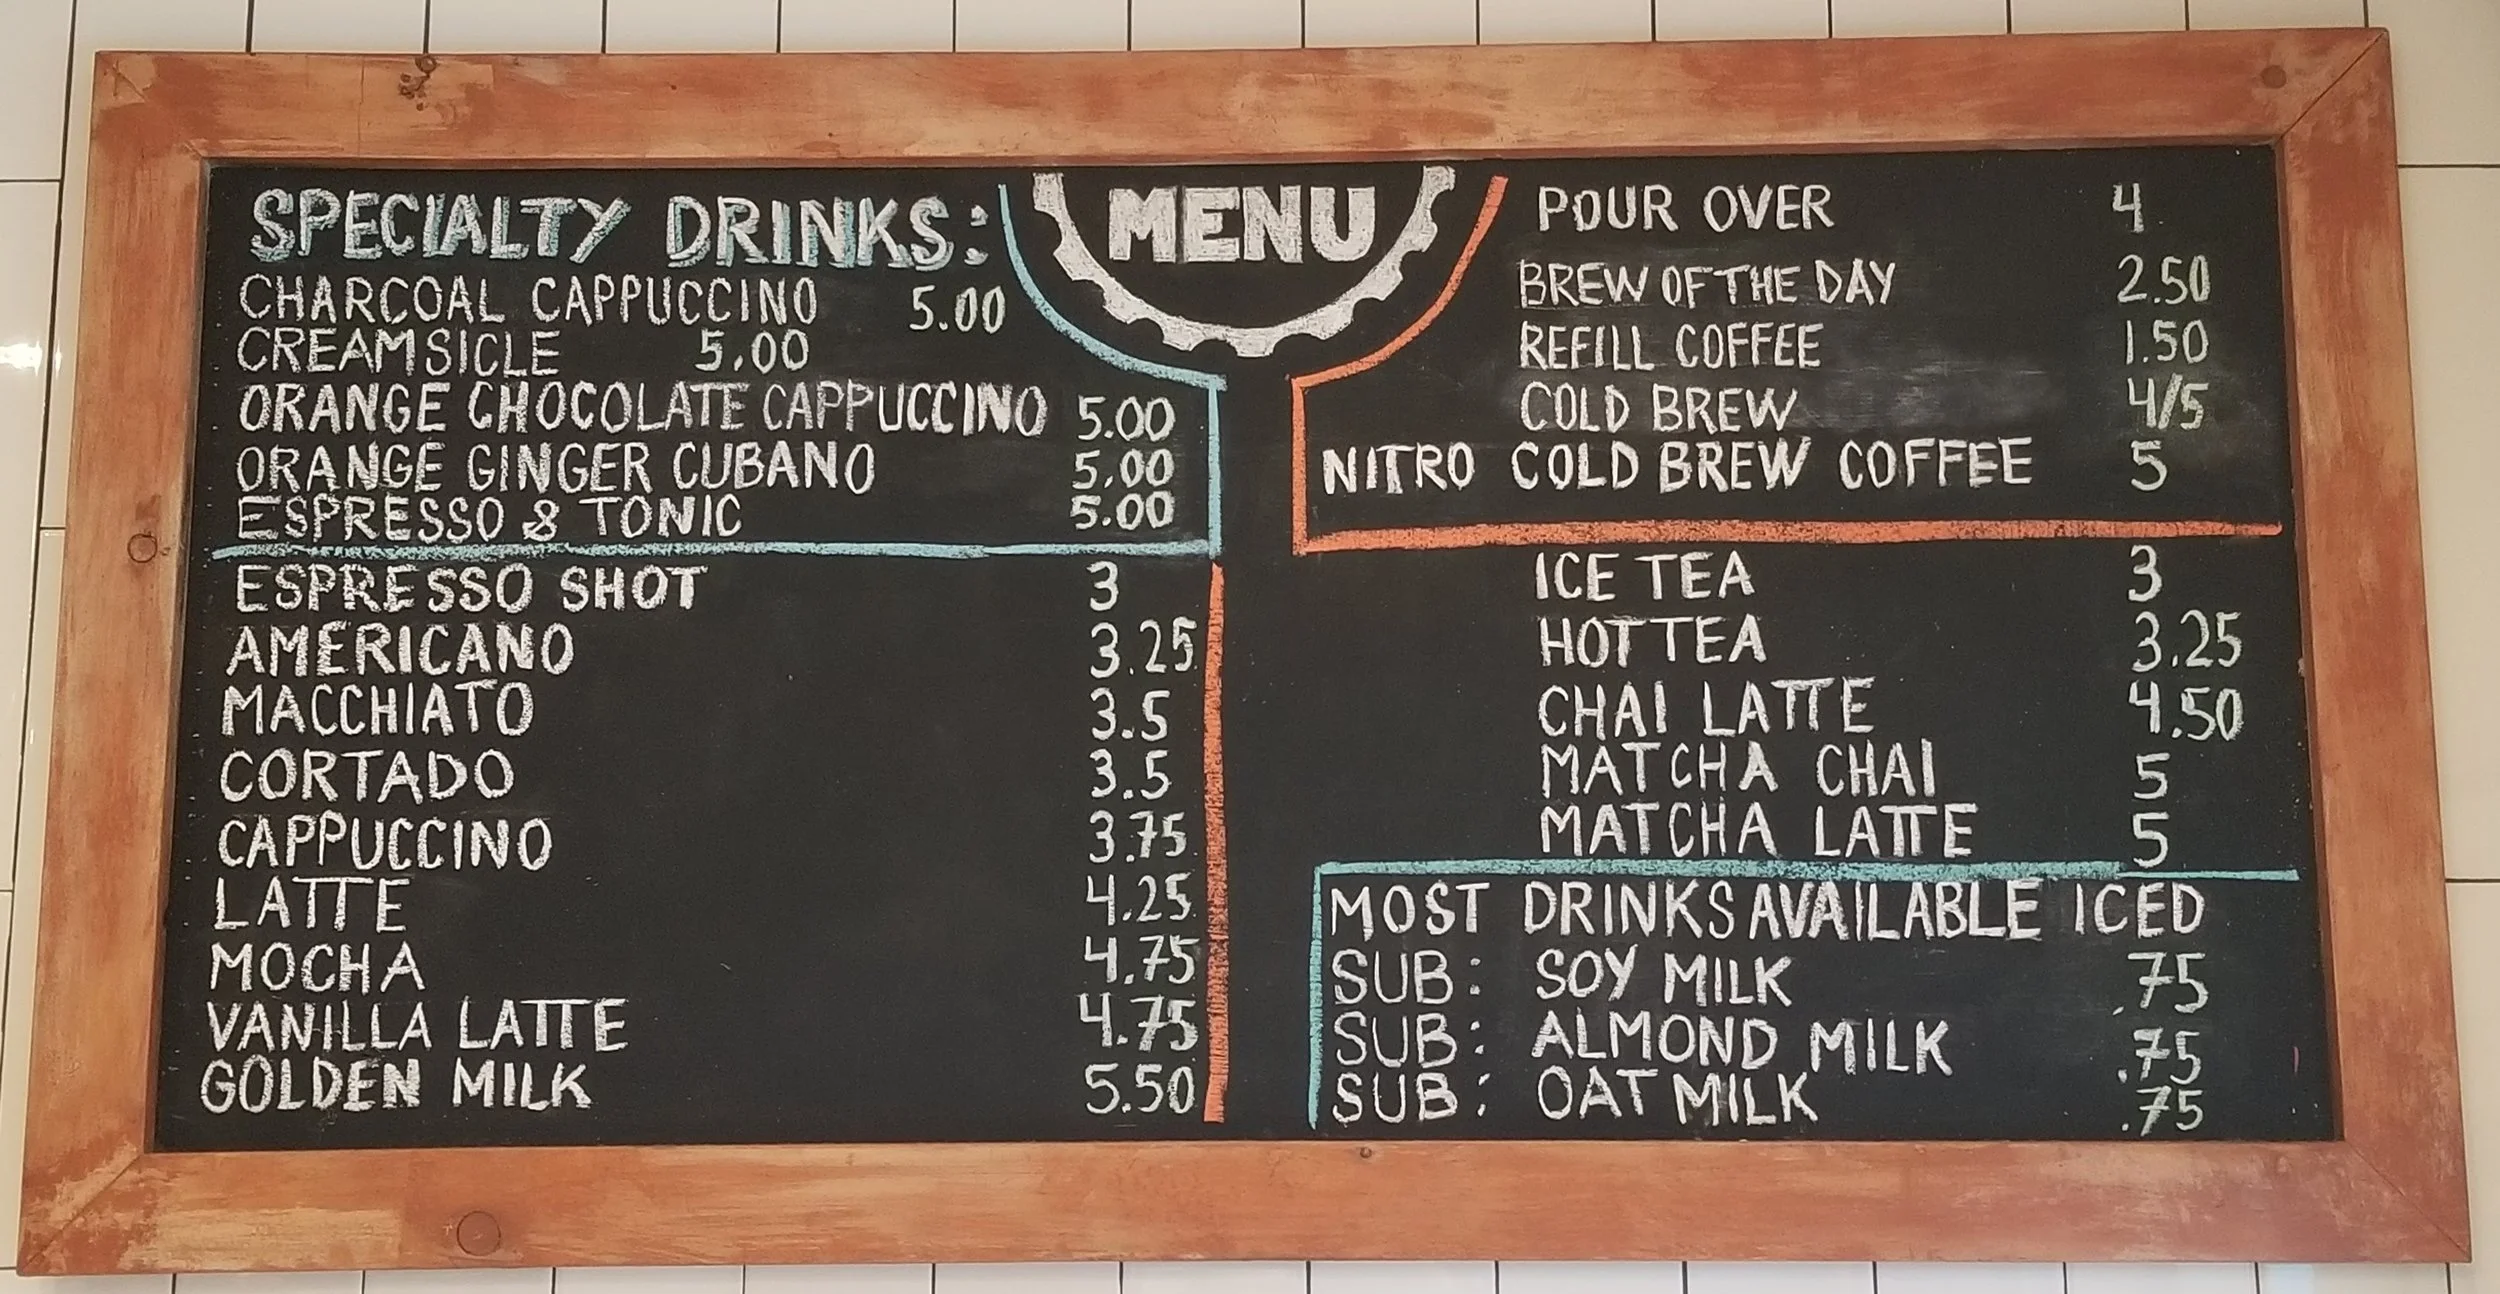 MENU
SPECIALTY DRINKS:
CHARCOAL CAPPUCCINO 5.00
CREAMSICLE 5.00
ORANGE CHOCOLATE CAPPUCCINO 5.00
ORANGE GINGER CUBANO 5.00
ESPRESSO & TONIC 5.00
ESPRESSO SHOT 3
AMERICANO 3.25
MACCHIATO 3.5
CORTADO 3.5
CAPPUCCINO 3.75
LATTE 4.25
MOCHA 4.75
VANILLA LATTE 4.75
GOLDEN MILK 5.50
POUR OVER 4
BREW OF THE DAY 2.50
REFILL COFFEE 1.50
COLD BREW 4/5
NITRO COLD BREW COFFEE 5
ICE TEA 3
HOT TEA 3.25
CHAI LATTE 4.50
MATCHA CHAI 5
MATCHA LATTE 5
MOST DRINKS AVAILABLE ICED
SUB: SOY MILK .75
SUB: ALMOND MILK .75
SUB: OAT MILK .75